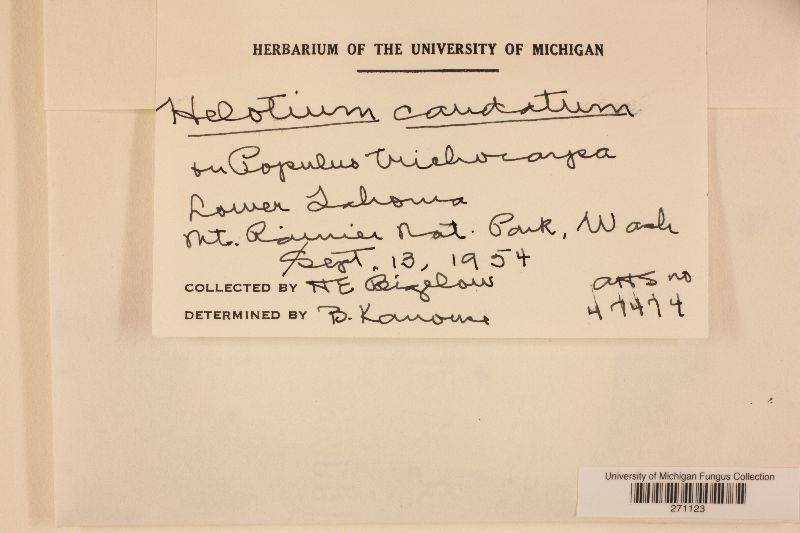 HERBARIUM OF THE UNIVERSITY OF MICHIGAN
Helotium caudatum
on Populus trichocarpa
Lower Tahoma
Mt. Rainier Nat. Park, Wash
Sept. 13, 1954
COLLECTED BY HE Bigelow AHS no
DETERMINED BY B. Kanouse 47474
University of Michigan Fungus Collection
271123